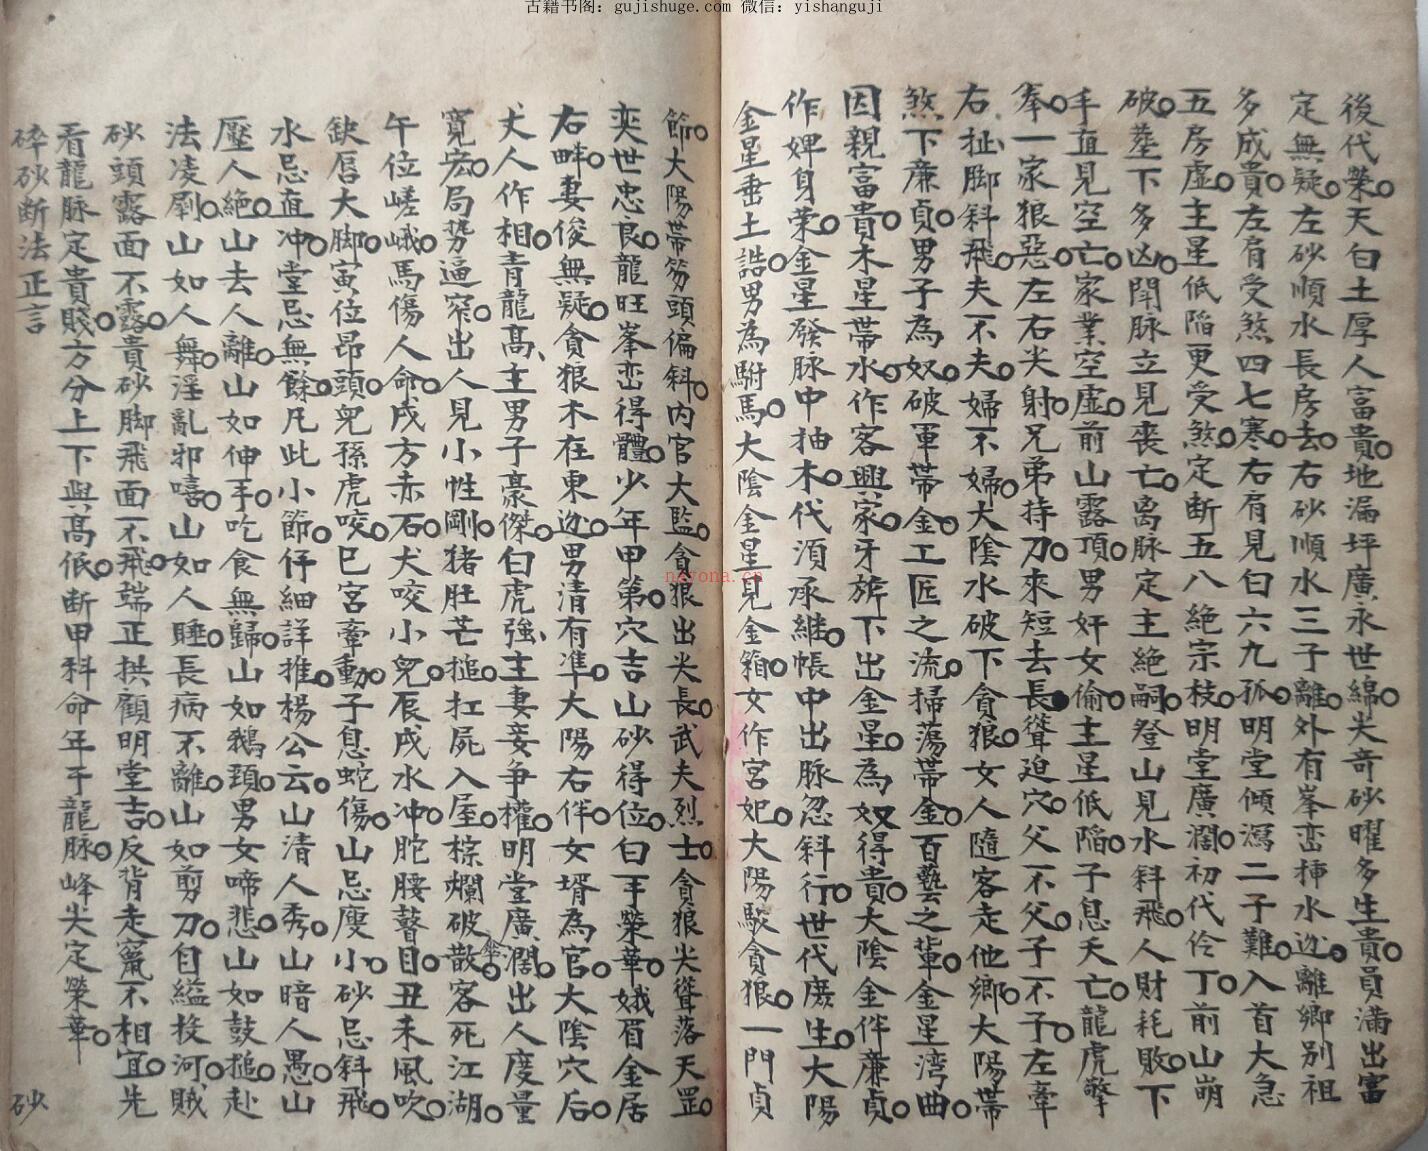 古籍书阁：gujishuge.com 微信：yishanguji
後代榮。天白土厚人富貴。地漏坪廣永世綿。尖奇砂曜多生貴。員滿出富
定無疑。左砂順水長房去。右砂順水三子離。外有峯峦揷水边。離鄉别祖
多成貴。左肩受煞四七寒。右肩見白六九孤。明堂傾瀉二子難。入首大急
五房虚。主星低陷更受煞。定断五八絶宗枝。明堂廣濶。初代伶丁。前山崩
破。塟下多凶。閗脉立見丧亡。离脉定主絶嗣。登山見水斜飛。人財耗敗。下
手直見空亡。家業空虚。前山露頂。男奸女偷。主星低陷。子息夭亡。龍虎擎
拳。一家狠惡。左右尖射。兄弟持刀。來短去長。聳迫穴。父不父。子不子。左牽
右扯。脚斜飛。夫不夫。婦不婦。大陰水破下貪狼。女人隨客走他鄉。大陽帶
煞下廉貞。男子為奴。破軍帶金。工匠之流。掃蕩帶金。百藝之輩。金星湾曲。
因親富貴。木星帶水。作客興家。牙旂下出金星。為奴得貴。大陰金伴廉貞。
作婢身荣。金星發脉中抽木。代湏承継。帳中出脉忽斜行。世代庶生。大陽
金星垂土誥。男為駙馬。大陰金星見金箱。女作宮妃。大陽駁貪狼。一門貞
節。大陽帶笏頭偏斜。内官大監。貪狼出尖長。武夫烈士。貪狼尖聳落天罡。
奕世忠良。龍旺峯峦得體。少年甲第。穴吉山砂得位。白手榮華。娥眉金居
右畔。妻俊無疑。貪狼木在東边。男清有準。大陽右伴。女壻為官。大陰穴后。
犬人作相。青龍高、主男子豪傑。白虎強、主妻妾争權。明堂廣濶。出人度量
寛宏。局势逼窄。出人見小性剛。猪肚芒槌。扛屍入屋。棕爛破傘。散客死江湖。
午位嵯峨。馬傷人命。戌方赤石。犬咬小兒。辰戌水冲。胣腰瞽目。丑未風吹。
缺唇大脚。寅位昂頭。兒孫虎咬。巳宮牽動。子息蛇傷。山忌廋小。砂忌斜飛。
水忌直冲。堂忌無餘。凡此小節。仔細詳推。楊公云。山清人秀。山暗人愚。山
壓人絶。山去人離。山如伸手。吃食無歸。山如鵝頸。男女啼悲。山如鼓槌。赴
法凌剮。山如人舞。淫亂邪嘻。山如人睡。長病不離。山如剪刀。自縊投河。賊
砂頭露面不露。貴砂脚飛面不飛。端正拱顧明堂吉。反背走竄不相宜。先
看龍脉定貴賤。方分上下與高低。断甲科命年于龍脉。峰尖定榮華。
碎砂断法正言
砂
nayona.cn